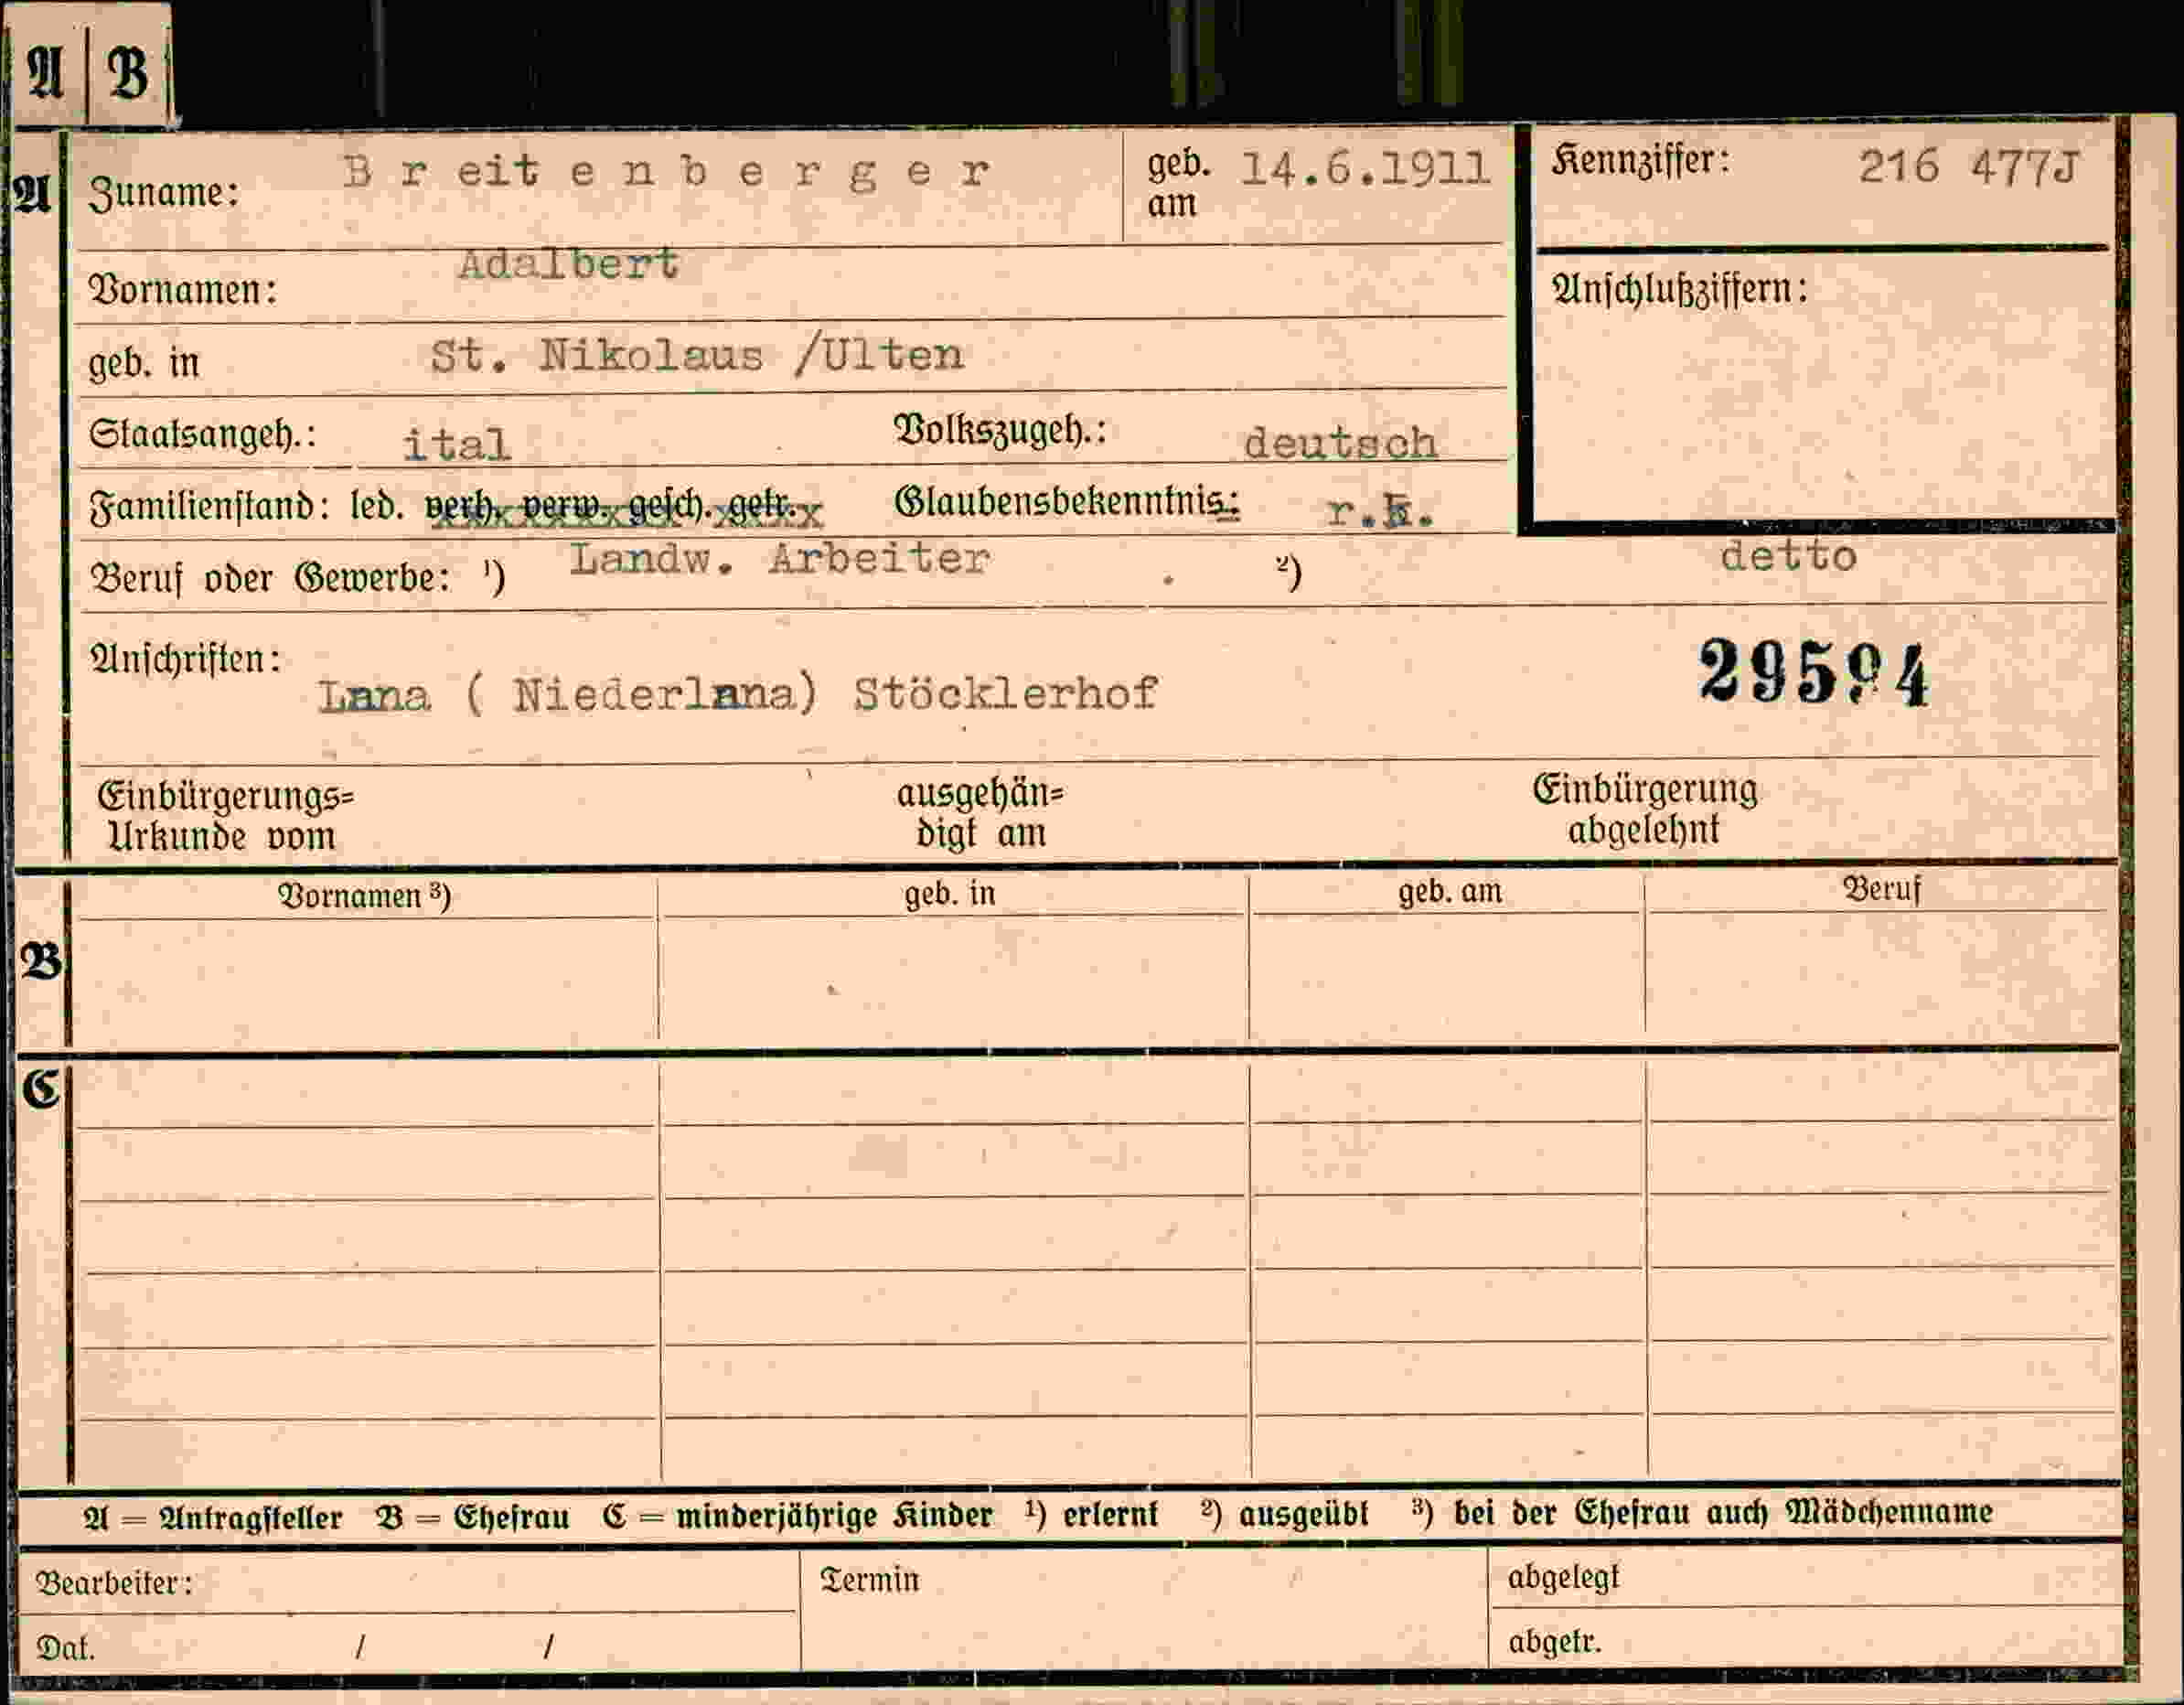 A B
A Zuname: Breitenberger geb. am 14.6.1911 Kennziffer: 216 477J
Vornamen: Adalbert Anschlußziffern:
geb. in St. Nikolaus /Ulten
Staatsangeh.: ital Volkszugeh.: deutsch
Familienstand: led. verh. verw. gesch. getr. Glaubensbekenntnis: r.k.
Beruf oder Gewerbe: ¹) Landw. Arbeiter ²) detto
Anschriften: Lana ( Niederlana) Stöcklerhof 29594
Einbürgerungs= ausgehän= Einbürgerung
Urkunde vom digt am abgelehnt
Vornamen ³) geb. in geb. am Beruf
B
C
A = Antragsteller B = Ehefrau C = minderjährige Kinder ¹) erlernt ²) ausgeübt ³) bei der Ehefrau auch Mädchenname
Bearbeiter: Termin abgelegt
Dat. / / abgetr.